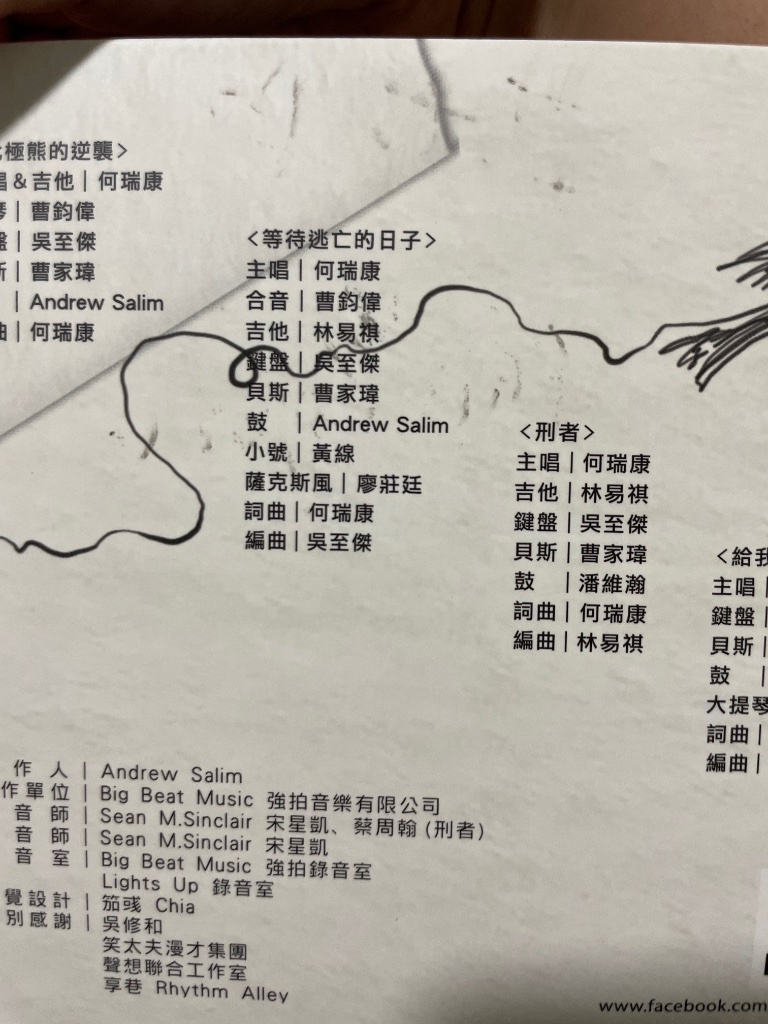 極熊的逆襲>
唱&吉他|何瑞康
琴|曹鈞偉
盤|吳至傑
斯|曹家瑋
|Andrew Salim
曲|何瑞康
<等待逃亡的日子>
主唱|何瑞康
合音|曹鈞偉
吉他|林易祺
鍵盤|吳至傑
貝斯|曹家瑋
鼓 |Andrew Salim
小號|黃線
薩克斯風|廖莊廷
詞曲|何瑞康
編曲|吳至傑
<刑者>
主唱|何瑞康
吉他|林易祺
鍵盤|吳至傑
貝斯|曹家瑋
鼓 |潘維瀚
詞曲|何瑞康
編曲|林易祺
<給我
主唱|
鍵盤|
貝斯|
鼓 |
大提琴
詞曲|
編曲|
作 人|Andrew Salim
作單位|Big Beat Music 強拍音樂有限公司
音 師|Sean M.Sinclair 宋星凱、蔡周翰(刑者)
音 師|Sean M.Sinclair 宋星凱
音 室|Big Beat Music 強拍錄音室
Lights Up 錄音室
覺設計|笳彧 Chia
別感謝|吳修和
笑太夫漫才集團
聲想聯合工作室
享巷 Rhythm Alley
www.facebook.com